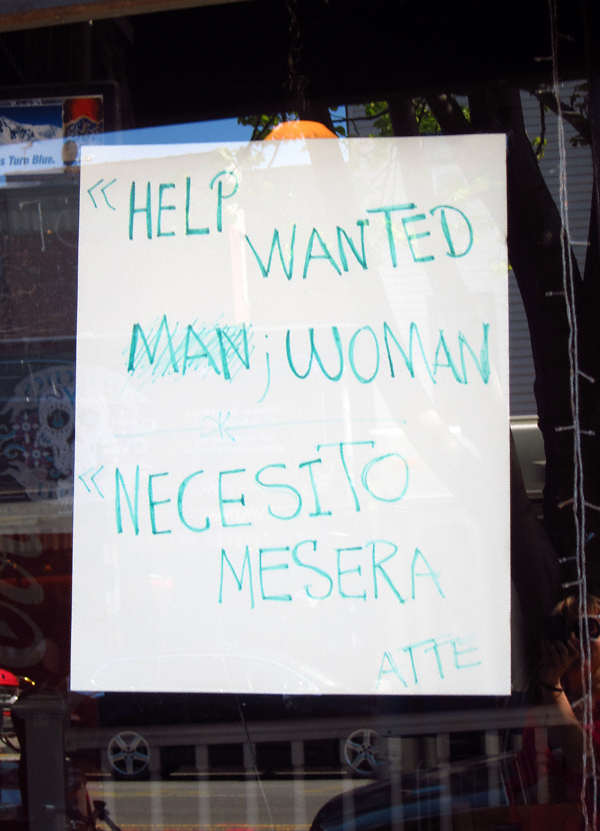 s Turn Blue.
"HELP
WANTED
MAN; WOMAN
"NECESITO
MESERA
ATTE